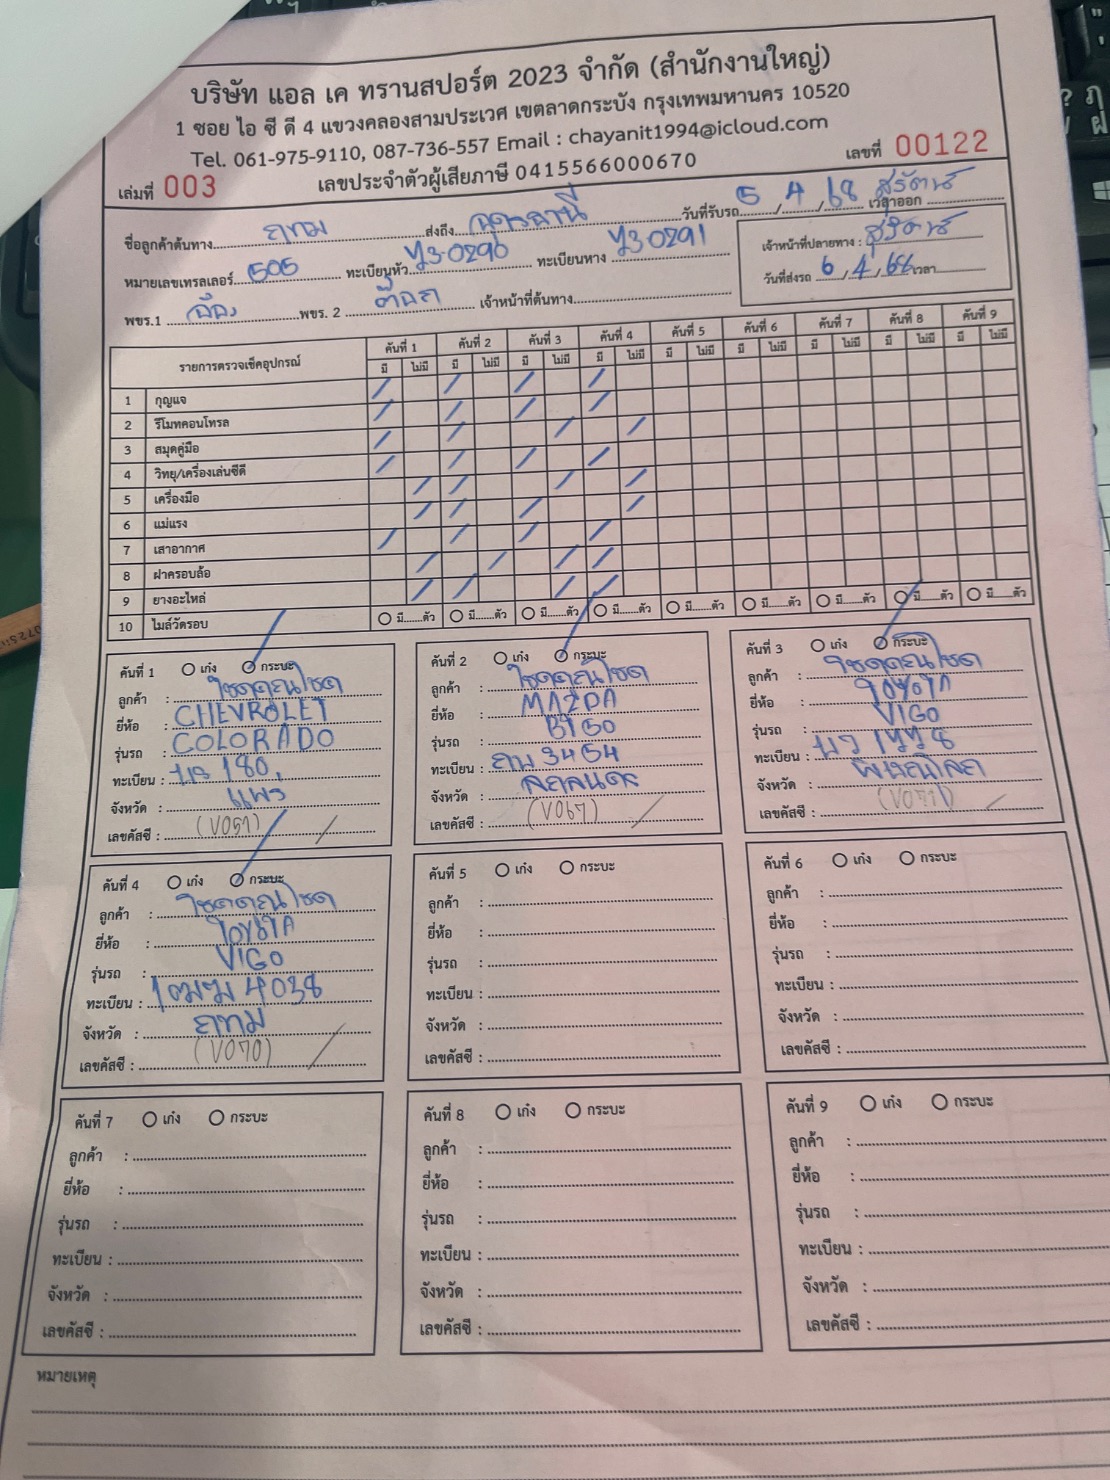 บริษัท แอล เค ทรานสปอร์ต 2023 จำกัด (สำนักงานใหญ่)
1 ซอย ไอ ซี ดี 4 แขวงคลองสามประเวศ เขตลาดกระบัง กรุงเทพมหานคร 10520
Tel. 061-975-9110, 087-736-557 Email : chayanit1994@icloud.com
เล่มที่ 003 เลขประจำตัวผู้เสียภาษี 0415566000670 เลขที่ 00122
ชื่อลูกค้าต้นทาง กทม ส่งถึง อุดรธานี วันที่รับรถ 5/4/68 เวลาออก
หมายเลขเทรลเลอร์ 505 ทะเบียนหัว 73-0290 ทะเบียนหาง 73-0291 เจ้าหน้าที่ปลายทาง :
พขร.1 พขร. 2 เจ้าหน้าที่ต้นทาง วันที่ส่งรถ 6/4/68 เวลา
รายการตรวจเช็คอุปกรณ์ คันที่ 1 คันที่ 2 คันที่ 3 คันที่ 4 คันที่ 5 คันที่ 6 คันที่ 7 คันที่ 8 คันที่ 9
มี ไม่มี มี ไม่มี มี ไม่มี มี ไม่มี มี ไม่มี มี ไม่มี มี ไม่มี มี ไม่มี มี ไม่มี
1 กุญแจ
2 รีโมทคอนโทรล
3 สมุดคู่มือ
4 วิทยุ/เครื่องเล่นซีดี
5 เครื่องมือ
6 แม่แรง
7 เสาอากาศ
8 ฝาครอบล้อ
9 ยางอะไหล่
10 ไมล์วัดรอบ มี......ตัว มี......ตัว มี......ตัว มี......ตัว มี......ตัว มี......ตัว มี......ตัว มี......ตัว มี......ตัว
คันที่ 1 เก๋ง กระบะ
ลูกค้า : โชคคูณโชค
ยี่ห้อ : CHEVROLET
รุ่นรถ : COLORADO
ทะเบียน : 180
จังหวัด : แพร่
เลขคัสซี : (V051)
คันที่ 2 เก๋ง กระบะ
ลูกค้า : โชคคูณโชค
ยี่ห้อ : MAZDA
รุ่นรถ : BT50
ทะเบียน : 3454
จังหวัด : สกลนคร
เลขคัสซี : (V067)
คันที่ 3 เก๋ง กระบะ
ลูกค้า : โชคคูณโชค
ยี่ห้อ : TOYOTA
รุ่นรถ : VIGO
ทะเบียน :
จังหวัด : พิษณุโลก
เลขคัสซี :
คันที่ 4 เก๋ง กระบะ
ลูกค้า : โชคคูณโชค
ยี่ห้อ : TOYOTA
รุ่นรถ : VIGO
ทะเบียน : 1ฒฆ 4038
จังหวัด : กทม
เลขคัสซี : (V070)
คันที่ 5 เก๋ง กระบะ
ลูกค้า :
ยี่ห้อ :
รุ่นรถ :
ทะเบียน :
จังหวัด :
เลขคัสซี :
คันที่ 6 เก๋ง กระบะ
ลูกค้า :
ยี่ห้อ :
รุ่นรถ :
ทะเบียน :
จังหวัด :
เลขคัสซี :
คันที่ 7 เก๋ง กระบะ
ลูกค้า :
ยี่ห้อ :
รุ่นรถ :
ทะเบียน :
จังหวัด :
เลขคัสซี :
คันที่ 8 เก๋ง กระบะ
ลูกค้า :
ยี่ห้อ :
รุ่นรถ :
ทะเบียน :
จังหวัด :
เลขคัสซี :
คันที่ 9 เก๋ง กระบะ
ลูกค้า :
ยี่ห้อ :
รุ่นรถ :
ทะเบียน :
จังหวัด :
เลขคัสซี :
หมายเหตุ